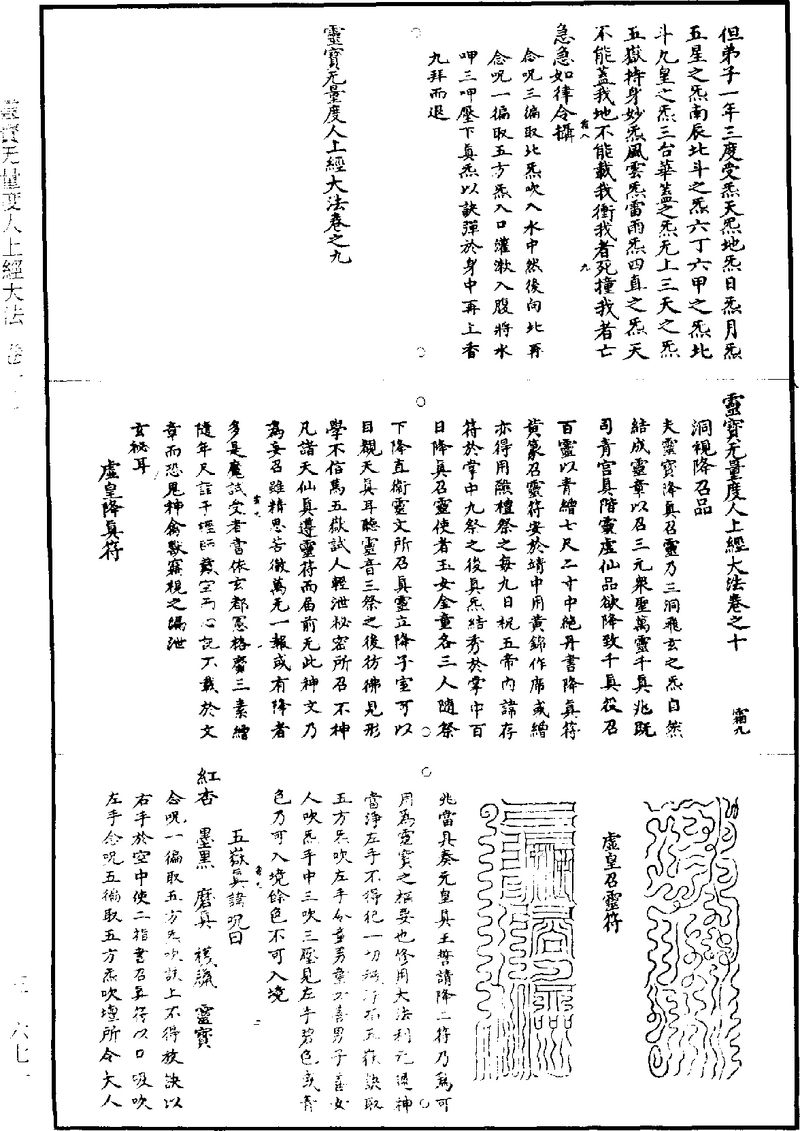 但弟子一年三度受炁天炁地炁日炁月炁
五星之炁南辰北斗之炁六丁六甲之炁北
斗九皇之炁三台華蓋之炁无上三天之炁
五嶽持身妙炁風雲炁雷雨炁四直之炁天
不能蓋我地不能載我衝我者死撞我者亡
急急如律令攝
念呪三徧取北炁吹入水中然後向北再
念呪一徧取五方炁入口灌漱入腹將水
呷三呷壓下真炁以訣彈於身中再上香
九拜而退
靈寶无量度人上經大法卷之九
靈寶无量度人上經大法卷之十
霜九
洞視降召品
夫靈寶降真召靈乃三洞飛玄之炁自然
結成靈章以召三元衆聖萬靈千真兆既
司青宮真階靈虛仙品欲降致千真役召
百靈以青繒七尺二寸中絶丹書降真符
黄篆召靈符安於靖中用黄錦作席或繒
亦得用醮檀祭之每九日祝五帝内諱存
符於掌中九祭之後真炁結秀於掌中百
日降真召靈使者玉女金童各三人隨祭
下降直衛靈文所召真靈立降子室可以
目覩天真耳聽靈音三祭之後彷彿見形
學不信萬五嶽試人輕泄祕密所召不神
凡諸天仙真遵靈符而届前无此神文乃
為妄召雖精思苦徹萬无一報或有降者
多是魔試受者當依玄都憲格齎三素繒
隨年尺
章而恐鬼神禽獸竊視之漏泄
玄祕耳
虛皇降真符
虛皇召靈符
兆當具奏元皇真王誓請降二符乃為可
用為靈寶之樞要也修用大法利元通神
當淨左手不得犯一切穢
五方炁吹左手
人吹炁手中三吹三壓見左手碧色或青
色乃可入境餘色不可入境
五嶽真諱呪曰
紅杏 墨黑 磨真 靈寶
念呪一徧取五方炁吹訣上不得放訣以
右手於空中使二指書召真符以口吸吹
左手念呪五徧取五方炁吹壇所令大人
靈寶无量度人上經大法 卷
三 六七